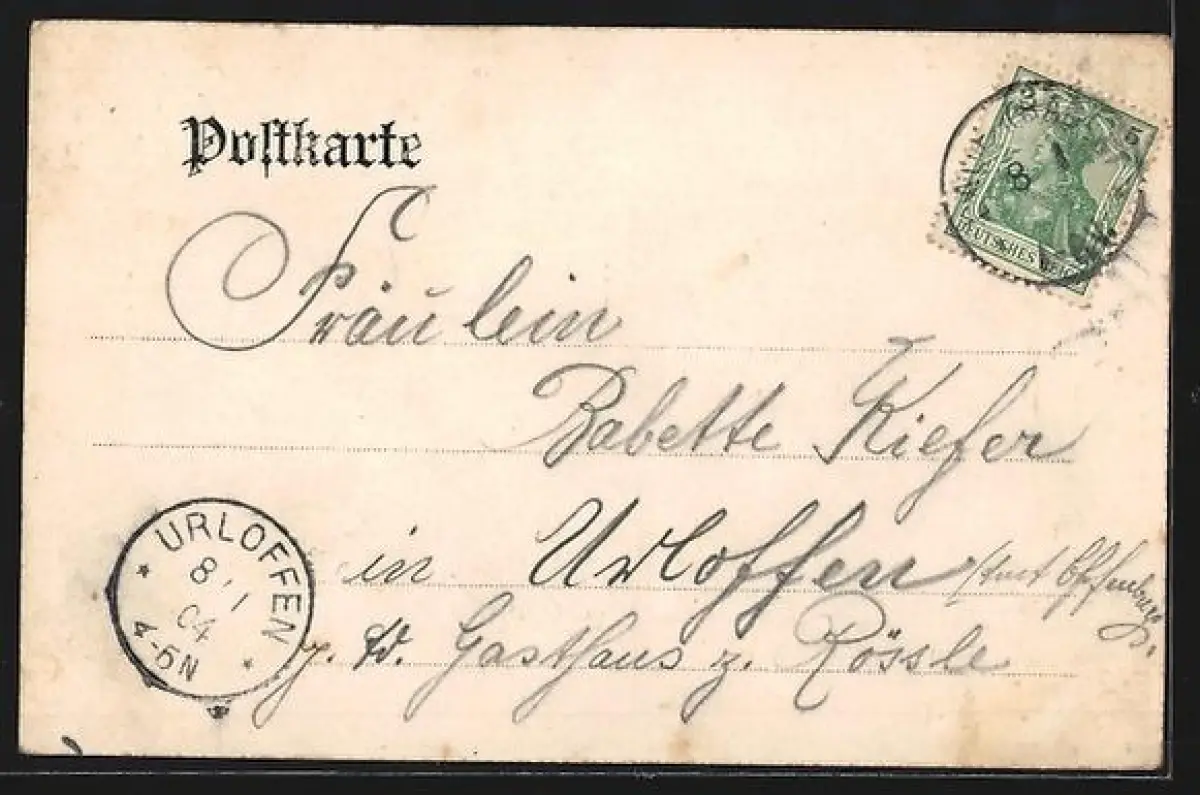 Postkarte
5
DEUTSCHES REICH
8 1
Fräulein
Babette Kiefer
in Urloffen
Amt Offenburg
Gasthaus z. Rössle
URLOFFEN
8 1
04
4-5N